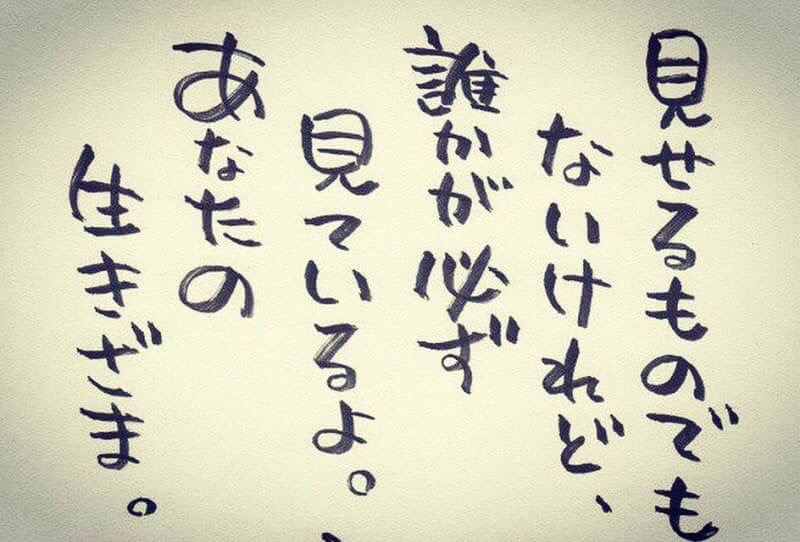 見せるものでも
ないけれど、
誰かが必ず
見ているよ。
あなたの
生きざま。